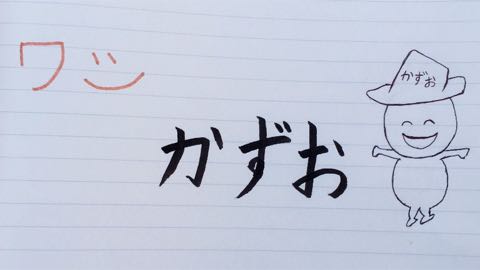 ワシ
かずお
かずお